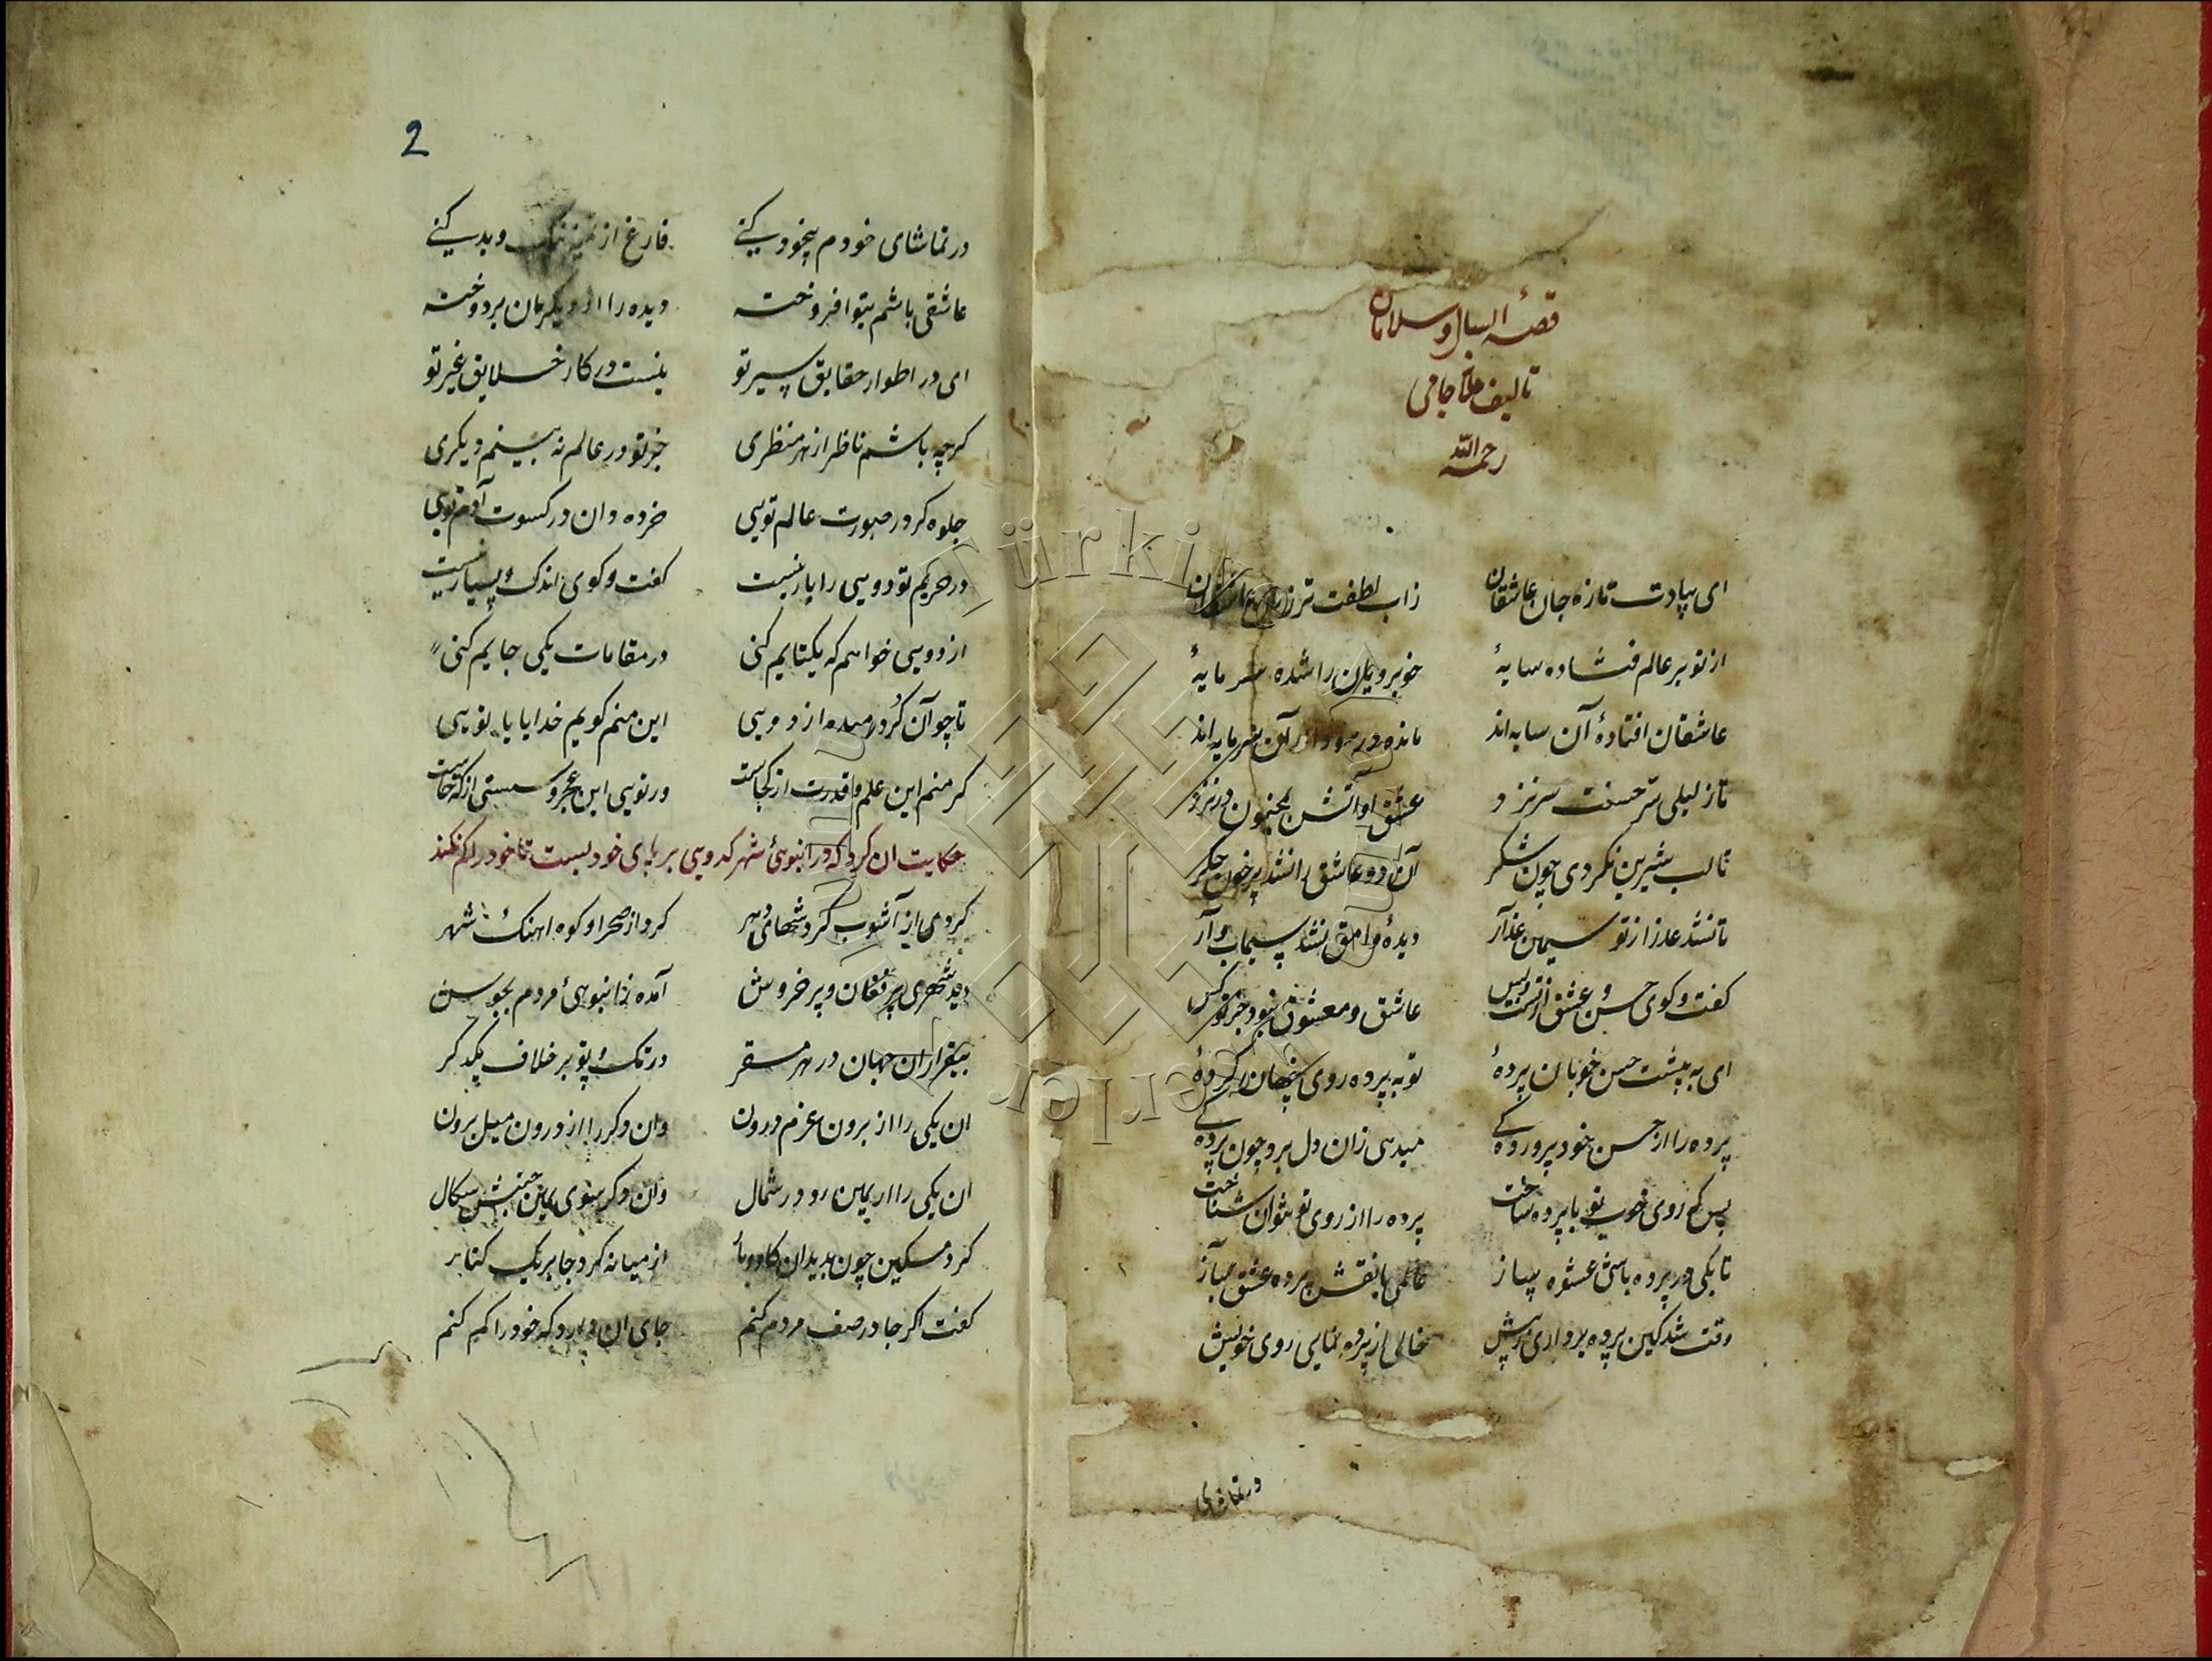 قصهٔ ابسال و سلامان
تالیف ملا جامی
رحمه الله
ای بیادت تازه جان عاشقان زاب لطفت تر زبان عاشقان
از تو بر عالم فتاده سایهٔ خوبرویان را شده سرمایهٔ
عاشقان افتادهٔ آن سایه اند مانده در سودا از آن سرمایه اند
تا ز لیلی سر حسنت سر نزد عشق او آتش بمجنون در نزد
تا لب شیرین نکردی چون شکر آن دو عاشق را نشد پر خون جگر
تا نشد عذرا ز تو سیمین عذار دیدهٔ وامق نشد سیماب وار
کفت و کوی حسن و عشق از تست و بس عاشق و معشوق نبود جز تو کس
ای به پیشت حسن خوبان پردهٔ تو به پرده روی پنهان کردهٔ
پرده را از حسن خود پرورده کی میدهی زان دل برو چون پرده کی
بس که روی خوب تو با پرده ساخت پرده را از روی تو نتوان شناخت
تا بکی در پرده باشی عشوه ساز عالمی با نقش پرده عشق باز
وقت شد کین پرده برداری ز پیش خالی از پرده نمایی روی خویش
در تماشای
2
در تماشای خودم بیخود کنی فارغ از تمییز نیک و بد کنی
عاشقی باشم بتو افروخته دیده را از دیکران بردوخته
ای در اطوار حقایق سیر تو نیست در کار خلایق غیر تو
کرچه باشم ناظر از هر منظری جز تو در عالم نه بینم دیکری
جلوه کر در صورت عالم تویی خرده دان در کسوت آدم تویی
در حریم تو دویی را بار نیست کفت و کوی اندک و بسیار نیست
از دویی خواهم که یکتایم کنی در مقامات یکی جایم کنی
تا چو آن کرد رمیده از دویی این منم کویم خدایا یا تویی
کر منم این علم و قدرت از کجاست ور تویی این عجز و سستی از که خاست
حکایت ان کرد که در انبوهئ شهر کدویی بر پای خود بست تا خود را کم نکند
کردی از آشوب کردشهای دهر کرد از صحرا و کوه اهنک شهر
دید شهری پر فغان و پر خروش آمده ز انبوهئ مردم بجوش
بیقراران جهان در هر مقر در تک و پو بر خلاف یکدکر
ان یکی را از برون عزم درون وان دکر را از درون میل برون
ان یکی را از یمین رو در شمال وان دکر سوی یمین جنبش سکال
کرد مسکین چون بدید ان کار و بار از میانه کرد جا بر یک کنار
کفت اکر جا در صف مردم کنم جای ان دارد که خود را کم کنم